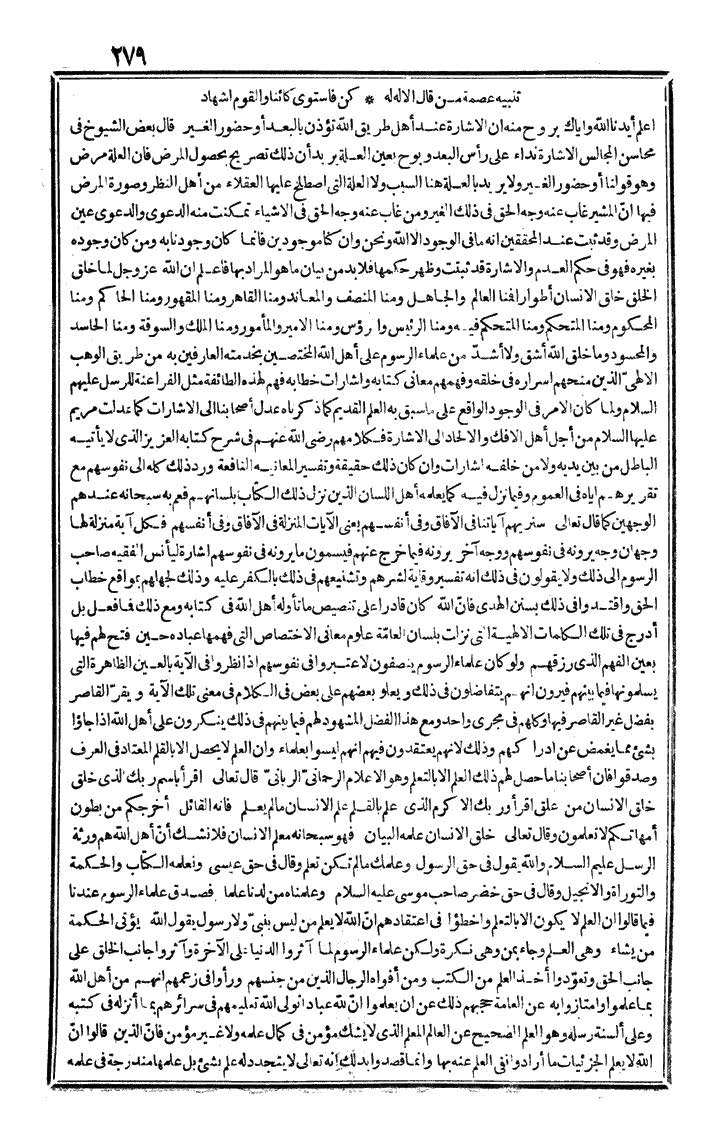 ٢٧٩
تنبيه عصمة من قال الاله له * كن فاستوى كائنا والقوم اشهاد
اعلم أيدنا الله واياك بروح منه ان الاشارة عند أهل طريق الله تؤذن بالبعد أو حضور الغير قال بعض الشيوخ فى
محاسن المجالس الاشارة نداء على رأس البعد وبوح بعين العلة يريد أن ذلك تصريح بحصول المرض فان العلة مرض
وهو قولنا أو حضور الغير ولا يريد بالعلة هنا السبب ولا العلة التى اصطلح عليها العقلاء من أهل النظر وصورة المرض
فيها انّ المشير غاب عنه وجه الحق فى ذلك الغير ومن غاب عنه وجه الحق فى الاشياء تمكنت منه الدعوى والدعوى عين
المرض وقد ثبت عند المحققين انه ما فى الوجود الا الله ونحن وان كنا موجودين فانما كان وجودنا به ومن كان وجوده
بغيره فهو فى حكم العدم والاشارة قد ثبتت وظهر حكمها فلا بد من بيان ما هو المراد بها فاعلم ان الله عز وجل لما خلق
الخلق خلق الانسان أطوارا فمنا العالم والجاهل ومنا المنصف والمعاند ومنا القاهر ومنا المقهور ومنا الحاكم ومنا
المحكوم ومنا المتحكم ومنا المتحكم فيه ومنا الرئيس والمرؤس ومنا الامير والمأمور ومنا الملك والسوقة ومنا الحاسد
والمحسود وما خلق الله أشق ولا أشدّ من علماء الرسوم على أهل الله المختصين بخدمته العارفين به من طريق الوهب
الالهىّ الذين منحهم أسراره فى خلقه وفهمهم معانى كتابه واشارات خطابه فهم لهذه الطائفة مثل الفراعنة للرسل عليهم
السلام ولما كان الامر فى الوجود الواقع على ما سبق به العلم القديم كما ذكرناه عدل أصحابنا الى الاشارات كما عدلت مريم
عليها السلام من أجل أهل الافك والالحاد الى الاشارة فكلامهم رضى الله عنهم فى شرح كتابه العزيز الذى لا يأتيه
الباطل من بين يديه ولا من خلفه اشارات وان كان ذلك حقيقة وتفسير المعانيه النافعة ورد ذلك كله الى نفوسهم مع
تقريرهم اياه فى العموم وفيما نزل فيه كما يعلمه أهل اللسان الذين نزل ذلك الكتاب بلسانهم فعم به سبحانه عندهم
الوجهين كما قال تعالى سنريهم آياتنا فى الآفاق وفى أنفسهم يعنى الآيات المنزلة فى الآفاق وفى أنفسهم فكل آية منزلة لها
وجهان وجه يرونه فى نفوسهم ووجه آخر يرونه فيما خرج عنهم فيسمون ما يرونه فى نفوسهم اشارة ليأنس الفقيه صاحب
الرسوم الى ذلك ولا يقولون فى ذلك انه تفسير وقاية لشرهم وتشنيعهم فى ذلك بالكفر عليه وذلك لجهلهم بمواقع خطاب
الحق واقتدوا فى ذلك بسنن الهدى فانّ الله كان قادرا على تنصيص ما تأوله أهل الله فى كتابه ومع ذلك فما فعل بل
أدرج فى تلك الكلمات الالهية التى نزلت بلسان العامّة علوم معانى الاختصاص التى فهمها عباده حين فتح لهم فيها
بعين الفهم الذى رزقهم ولو كان علماء الرسوم ينصفون لاعتبروا فى نفوسهم اذا نظروا فى الآية بالعين الظاهرة التى
يسلمونها فيما بينهم فيرون انهم يتفاضلون فى ذلك ويعلو بعضهم على بعض فى الكلام فى معنى تلك الآية و يقرّ القاصر
بفضل غير القاصر فيها وكلهم فى مجرى واحد ومع هذا الفضل المشهود لهم فيما بينهم فى ذلك ينكرون على أهل الله اذا جاؤا
بشئ مما يغمض عن ادراكهم وذلك لانهم يعتقدون فيهم انهم ليسوا بعلماء وان العلم لا يحصل الا بالقلم المعتاد فى العرف
وصدقوا فان أصحابنا ما حصل لهم ذلك العلم الا بالتعلم وهو الاعلام الرحمانىّ الربانىّ قال تعالى اقرأ باسم ربك الذى خلق
خلق الانسان من علق اقرأ وربك الاكرم الذى علم بالقلم علم الانسان ما لم يعلم فانه القائل أخرجكم من بطون
أمهاتكم لا تعلمون وقال تعالى خلق الانسان علمه البيان فهو سبحانه معلم الانسان فلا نشك أنّ أهل الله هم ورثة
الرسل عليهم السلام والله يقول فى حق الرسول وعلمك ما لم تكن تعلم وقال فى حق عيسى ونعلمه الكتاب والحكمة
والتوراة والانجيل وقال فى حق خضر صاحب موسى عليه السلام وعلمناه من لدنا علما فصدق علماء الرسوم عندنا
فيما قالوا ان العلم لا يكون الا بالتعلم واخطؤا فى اعتقادهم انّ الله لا يعلم من ليس بنبىّ ولا رسول يقول الله يؤتى الحكمة
من يشاء وهى العلم وجاء بمن وهى نكرة ولكن علماء الرسوم لما آثروا الدنيا على الآخرة وآثروا جانب الخلق على
جانب الحق وتعوّدوا أخذ العلم من الكتب ومن أفواه الرجال الذين من جنسهم ورأوا فى زعمهم انهم من أهل الله
بما علموا وامتازوا به عن العامة حجبهم ذلك عن ان يعلموا انّ لله عبادا تولى الله تعليمهم فى سرائرهم بما أنزله فى كتبه
وعلى ألسنة رسله وهو العلم الصحيح عن العالم المعلم الذى لا يشك مؤمن فى كمال علمه ولا غير مؤمن فانّ الذين قالوا انّ
الله لا يعلم الجزئيات ما أرادوا نفى العلم عنه بها وانما قصدوا بذلك انه تعالى لا يتجدد له علم بشئ بل علمها مندرجة فى علمه